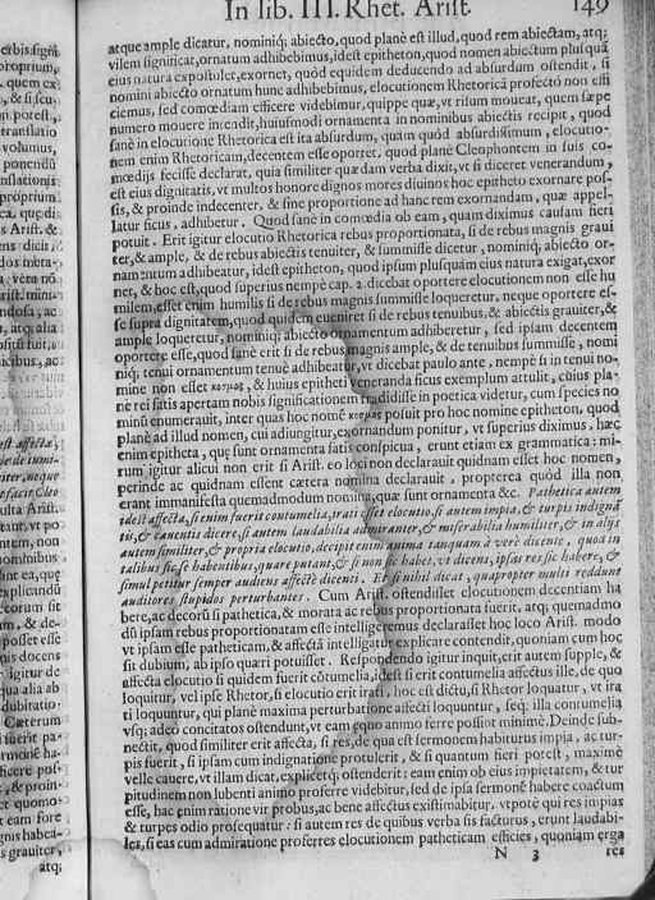 In lib. III. Rhet. Arist. 149
atque ample dicatur, nominiq; abiecto, quod planè est illud, quod rem abiectam, atq;
vilem significat, ornatum adhibebimus, idest epitheton, quod nomen abiectum plusquā
eius natura expostulet, exornet, quòd equidem deducendo ad absurdum ostendit, si
nomini abiecto ornatum hunc adhibebimus, elocutionem Rhetoricā profectò non effi
ciemus, sed comœdiam efficere videbimur, quippe quæ, vt risum moueat, quem sæpe
numero mouere intendit, huiusmodi ornamenta in nominibus abiectis recipit, quod
sanè in elocutione Rhetorica est ita absurdum, quàm quòd absurdissimum, elocutio-
nem enim Rhetoricam, decentem esse oportet, quod planè Cleophontem in suis co-
mœdijs fecisse declarat, quia similiter quædam verba dixit, vt si diceret venerandum,
est eius dignitatis, vt multos honore dignos mores diuinos hoc epitheto exornare pos-
sis, & proinde indecenter, & sine proportione ad hanc rem exornandam, quæ appel-
latur ficus, adhibetur. Quod sanè in comœdia ob eam, quam diximus causam fieri
potuit. Erit igitur elocutio Rhetorica rebus proportionata, si de rebus magnis graui
ter, & ample, & de rebus abiectis tenuiter, & summisse dicetur, nominiq; abiecto or-
namentum adhibeatur, idest epitheton, quod ipsum plusquàm eius natura exigat, exor
net, & hoc est, quod superius nempè cap. 2. dicebat oportere elocutionem non esse hu
milem, esset enim humilis si de rebus magnis summisse loqueretur, neque oportere es-
se supra dignitatem, quod quidem eueniret si de rebus tenuibus, & abiectis grauiter, &
ample loqueretur, nominiq; abiecto ornamentum adhiberetur, sed ipsam decentem
oportere esse, quod sanè erit si de rebus magnis ample, & de tenuibus summisse, nomi
niq; tenui ornamentum tenuè adhibeatur, vt dicebat paulo ante, nempè si in tenui no-
mine non esset κοσμος, & huius epitheti veneranda ficus exemplum attulit, cuius pla-
nè rei satis apertam nobis significationem tradidisse in poetica videtur, cum species no
minū enumerauit, inter quas hoc nomē κοσμος posuit pro hoc nomine epitheton, quod
planè ad illud nomen, cui adiungitur, exornandum ponitur, vt superius diximus, hæc
enim epitheta, quę sunt ornamenta satis conspicua, erunt etiam ex grammatica: mi-
rum igitur alicui non erit si Arist. eo loci non declarauit quidnam esset hoc nomen,
perinde ac quidnam essent cætera nomina declarauit, propterea quòd illa non
erant immanifesta quemadmodum nomina, quæ sunt ornamenta &c. Pathetica autem
idest affecta, si enim fuerit contumelia, irati esset elocutio, si autem impia, & turpis indignā
tis, & cauentis dicere, si autem laudabilia admiranter, & miserabilia humiliter, & in alijs
autem similiter, & propria elocutio, decipit enim anima tanquam à verè dicente, quòd in
talibus sic, se habentibus, quare putant, & si non sic habet, vt dicens, ipsas res sic habere, &
simul petitur semper audiens affectè dicenti. Et si nihil dicat, quapropter multi reddunt
auditores stupidos perturbantes. Cum Arist. ostendisset elocutionem decentiam ha
bere, ac decorū si pathetica, & morata ac rebus proportionata fuerit, atq; quemadmo
dū ipsam rebus proportionatam esse intelligeremus declarasset hoc loco Arist. modo
vt ipsam esse patheticam, & affectā intelligatur explicare contendit, quoniam cum hoc
sit dubium, ab ipso quæri potuisset. Respondendo igitur inquit, erit autem supple, &
affecta elocutio si quidem fuerit cōtumelia, idest si erit contumelia affectus ille, de quo
loquitur, vel ipse Rhetor, si elocutio erit irati, hoc est dictu, si Rhetor loquatur, vt ira
ti loquuntur, qui planè maxima perturbatione affecti loquuntur, seq; illa contumelia
vsq; adeo concitatos ostendunt, vt eam ęquo animo ferre possint minimè. Deinde sub-
nectit, quòd similiter erit affecta, si res, de qua est sermonem habiturus impia, ac tur-
pis fuerit, si ipsam cum indignatione protulerit, & si quantum fieri potest, maximè
velle cauere, vt illam dicat, explicetq; ostenderit: eam enim ob eius impietatem, & tur
pitudinem non lubenti animo proferre videbitur, sed de ipsa sermonē habere coactum
esse, hac enim ratione vir probus, ac bene affectus existimabitur, vtpotè qui res impias
& turpes odio prosequatur: si autem res de quibus verba sis facturus, erunt laudabi-
les, si eas cum admiratione proferres elocutionem patheticam efficies, quoniam erga
N 3 res